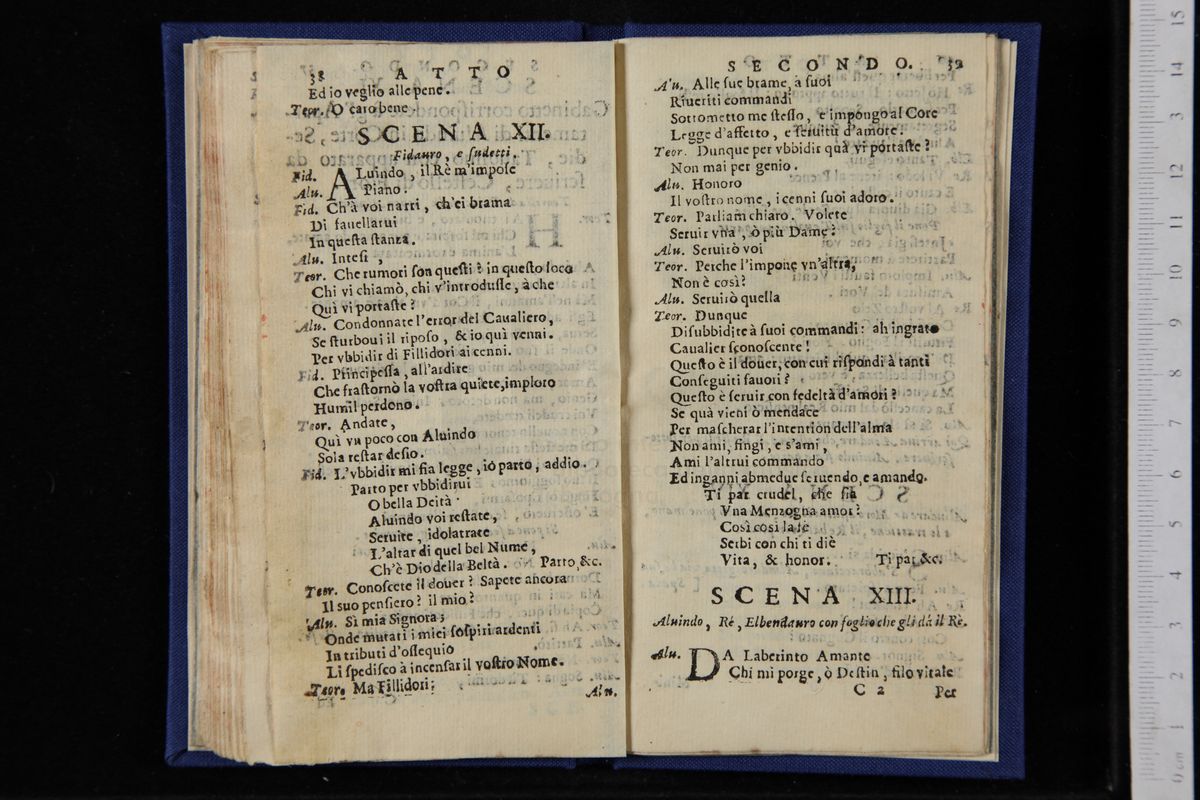 38 ATTO
Ed io veglio alle pene.
Teor. O caro bene.
SCENA XII.
Fidauro, e sudetti.
Fid. ALuindo, il Rè m'impose
Alu. Piano.
Fid. Ch'à voi narri, ch'ei brama
Di fauellarui
In questa stanza.
Alu. Intesi,
Teor. Che rumori son questi? in questo loco
Chi vi chiamò, chi v'introdusse, à che
Quì vi portaste?
Alu. Condonnate l'error del Caualiero,
Se sturboui il riposo, & io quì venni.
Per vbbidir di Fillidori ai cenni.
Fid. Principessa, all'ardire
Che frastornò la vostra quiete, imploro
Humil perdono.
Teor. Andate,
Quì vn poco con Aluindo
Sola restar desio.
Fid. L'vbbidir mi fia legge, io parto, addio.
Parto per vbbidirui
O bella Deità
Aluindo voi restate,
Seruite, idolatrate
L'altar di quel bel Nume,
Ch'è Dio della Beltà. Parto, &c.
Teor. Conoscete il douer? Sapete ancora
Il suo pensiero? il mio?
Alu. Sì mia Signora;
Onde mutati i miei sospiri ardenti
In tributi d'ossequio
Li spedisco à incensar il vostro Nome.
Teor. Ma Fillidori;
Alu.
SECONDO. 39
Alu. Alle sue brame, à suoi
Riueriti commandi
Sottometto me stesso, e impongo al Core
Legge d'affetto, e seruitù d'amore.
Teor. Dunque per vbbidir quà vi portaste?
Non mai per genio.
Alu. Honoro
Il vostro nome, i cenni suoi adoro.
Teor. Parliam chiaro. Volete
Seruir vna, ò più Dame?
Alu. Seruirò voi
Teor. Perche l'impone vn'altra,
Non è così?
Alu. Seruirò quella
Teor. Dunque
Disubbidite à suoi commandi: ah ingrato
Caualier sconoscente!
Questo è il douer, con cui rispondi à tanti
Conseguiti fauori?
Questo è seruir con fedeltà d'amori?
Se quà vieni ò mendace
Per mascherar l'intention dell'alma
Non ami, fingi, e s'ami,
Ami l'altrui commando
Ed inganni abmedue seruendo, e amando.
Ti par crudel, che sia
Vna Menzogna amor?
Così così la fè
Serbi con chi ti diè
Vita, & honor. Ti par &c.
SCENA XIII.
Aluindo, Ré, Elbendauro con foglio che gli dà il Rè.
Alu. DA Laberinto Amante
Chi mi porge, ò Destin, filo vitale
C 2 Per